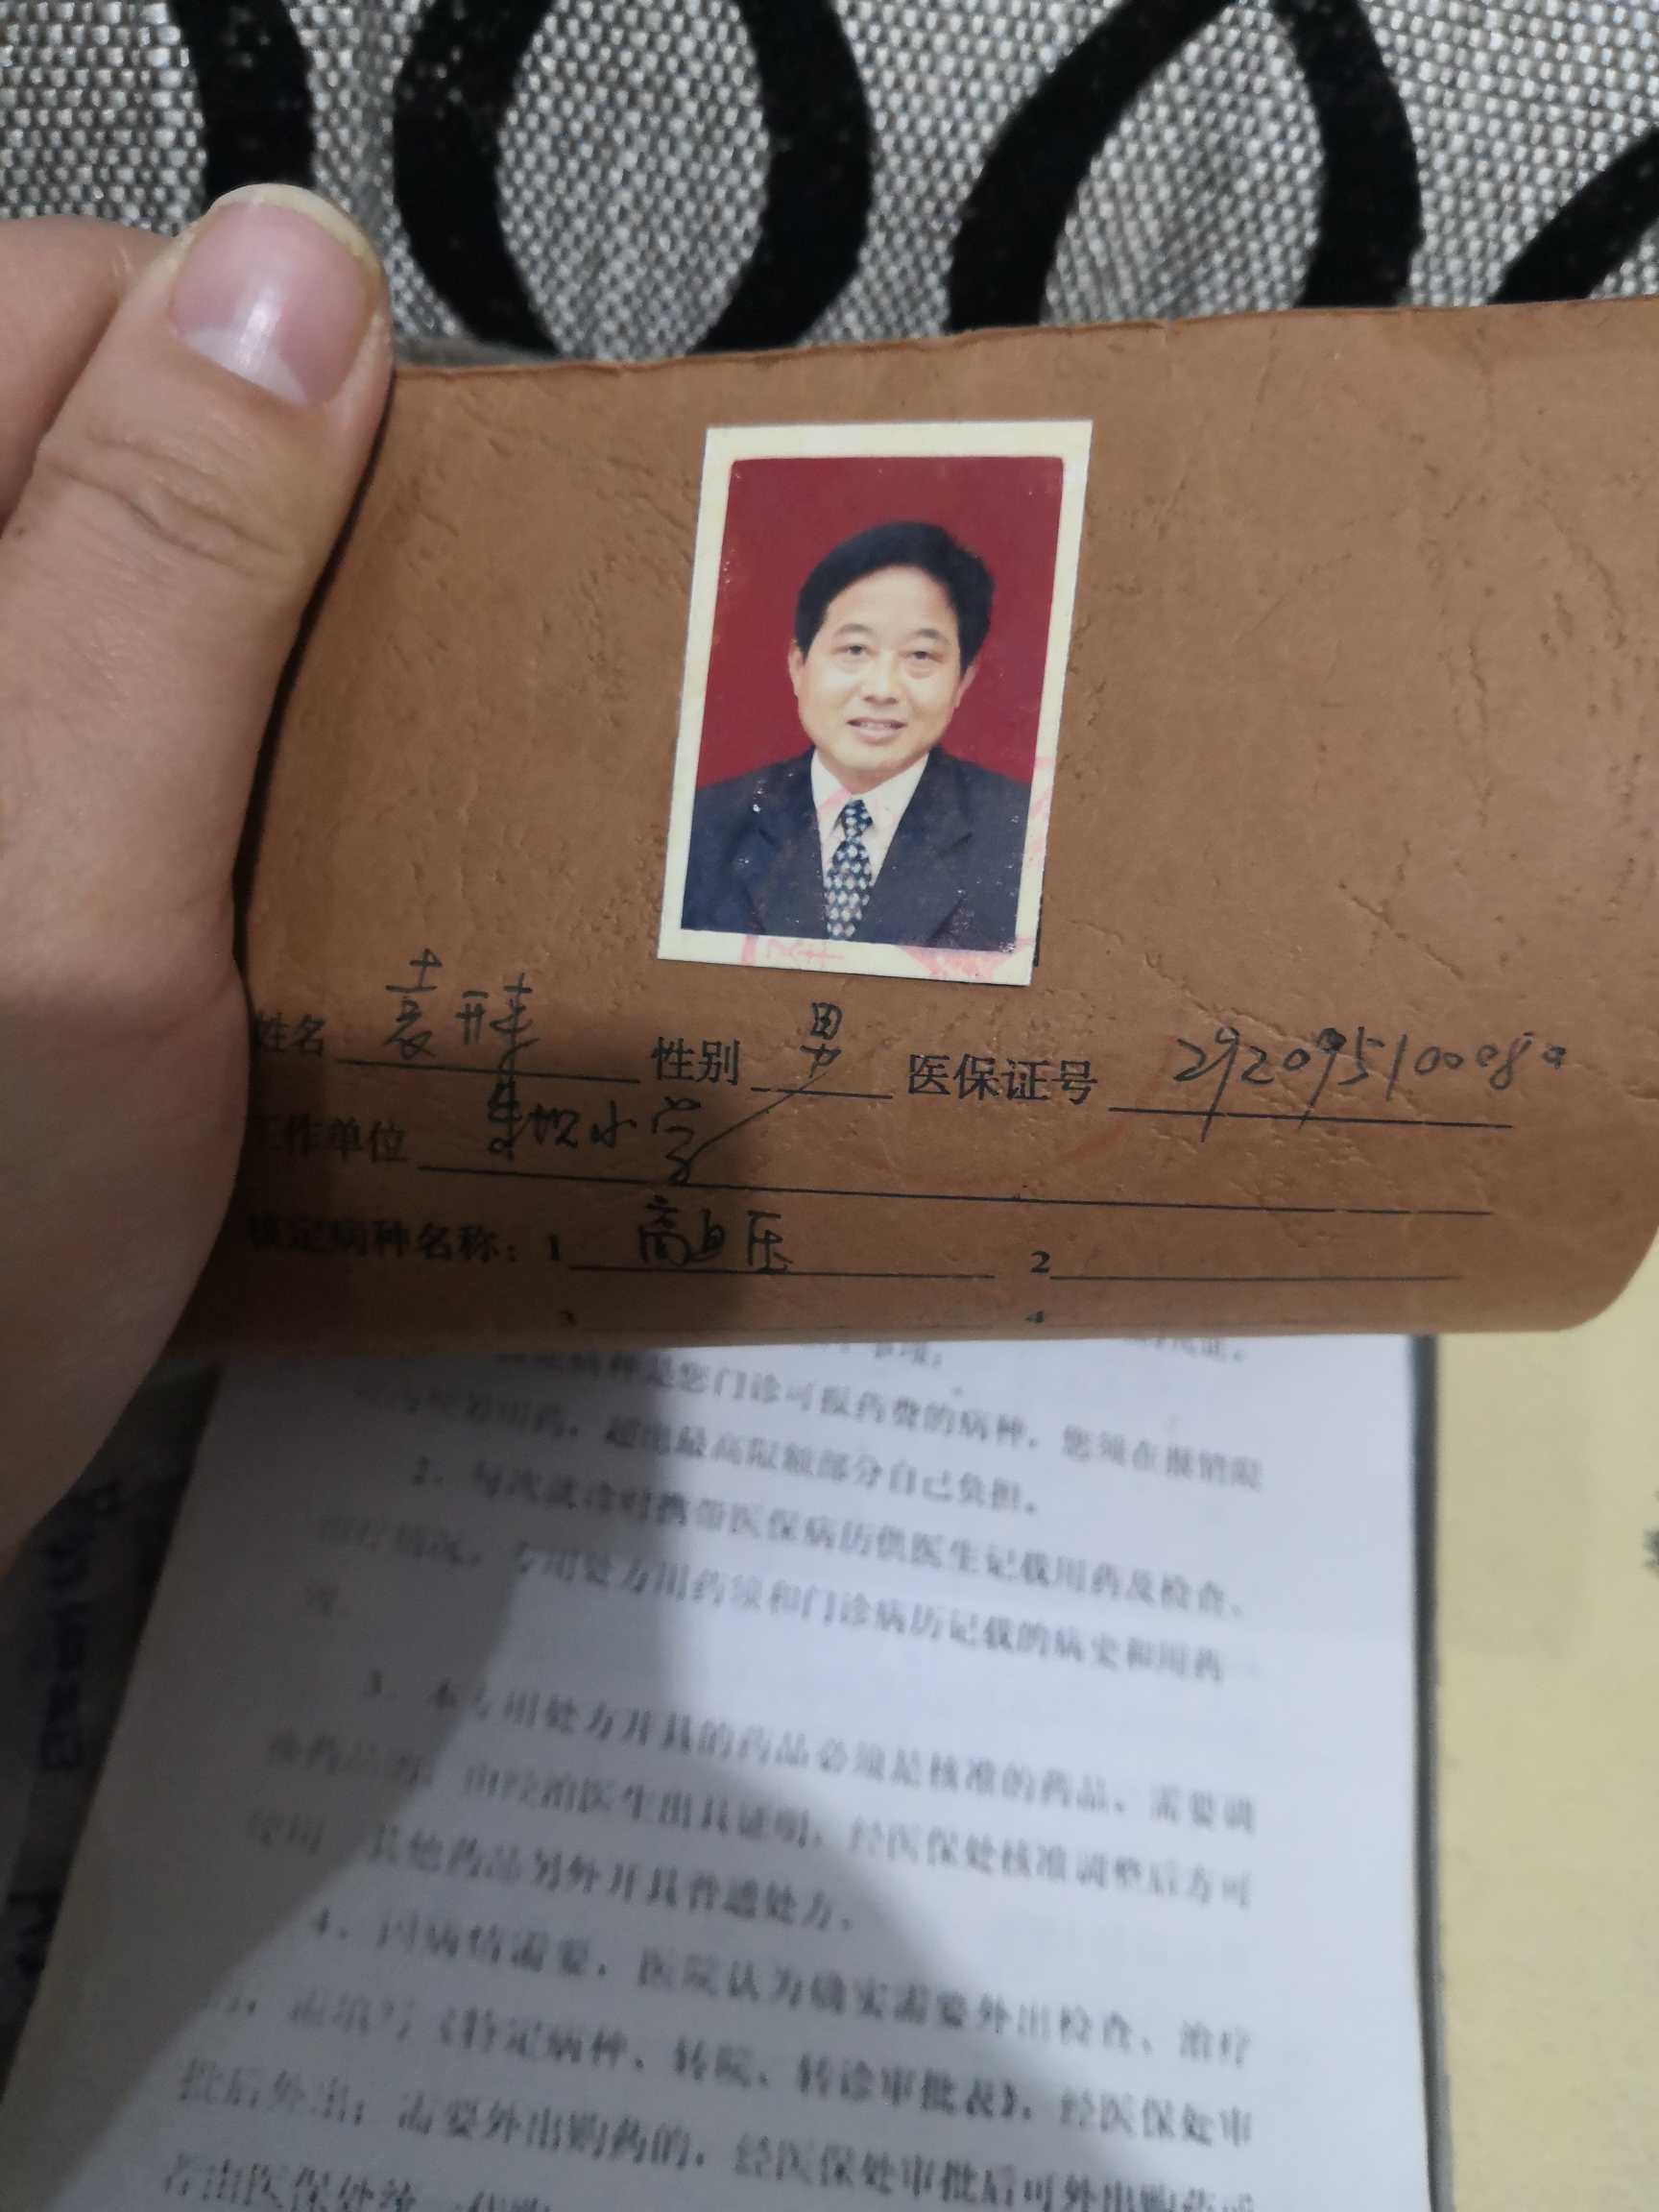 姓名 袁 性别 男 医保证号 292095100080
工作单位 小学
核定病种名称：1 高血压 2
3 4
事项：
病种是您门诊可报药费的病种，您须在报销限
用药，超出最高限额部分自己负担。
2．每次就诊时携带医保病历供医生记载用药及检查、
治疗情况，专用处方用药须和门诊病历记载的病史和用药
3．本专用处方开具的药品必须是核准的药品，需要调
换药品的，由经治医生出具证明，经医保处核准调整后方可
使用，其他药品另外开具普通处方。
4．因病情需要，医院认为确实需要外出检查、治疗
的，需填写《特定病种、转院、转诊审批表》，经医保处审
批后外出；需要外出购药的，经医保处审批后可外出购药或
者由医保处统一代购